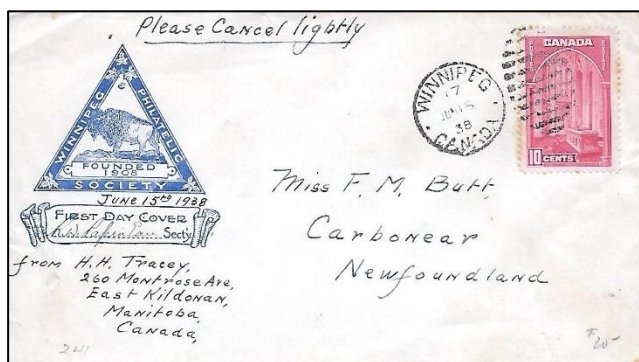 Please Cancel lightly
WINNIPEG PHILATELIC SOCIETY
FOUNDED
1908
June 15th 1938
FIRST DAY COVER
Sect'y
from H.H. Tracey,
260 Montrose Ave,
East Kildonan,
Manitoba,
Canada,
WINNIPEG
17
JUN 15
38
CANADA
CANADA
10 CENTS
Miss F. M. Butt,
Carbonear
Newfoundland